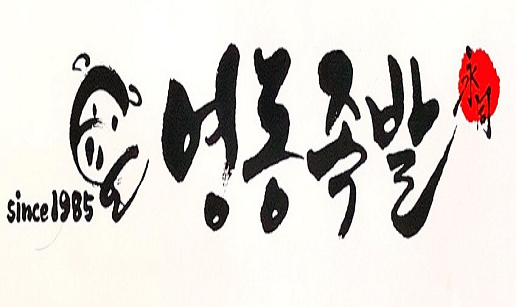 since1985 영동족발 永同